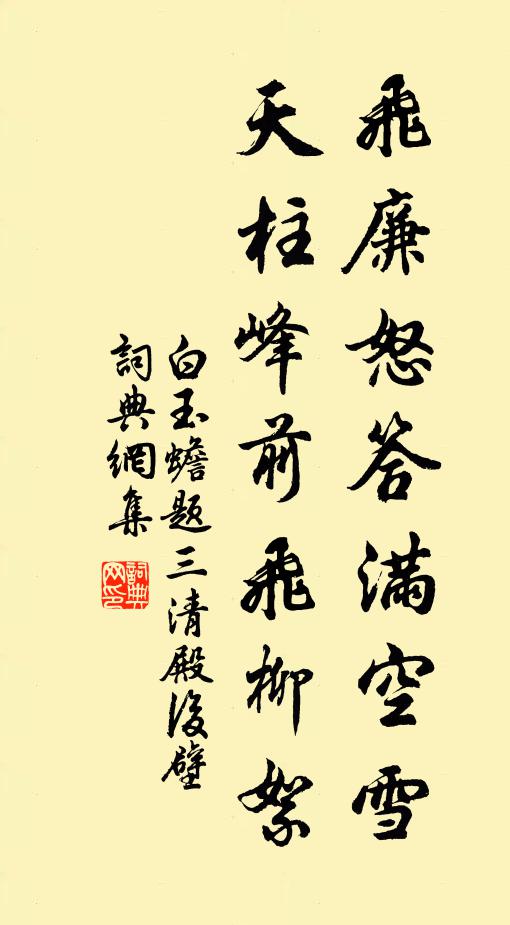 飛廉怒答滿空雪
天柱峰前飛柳絮
白玉蟾題三清殿後壁
詞典網集
詞典網印